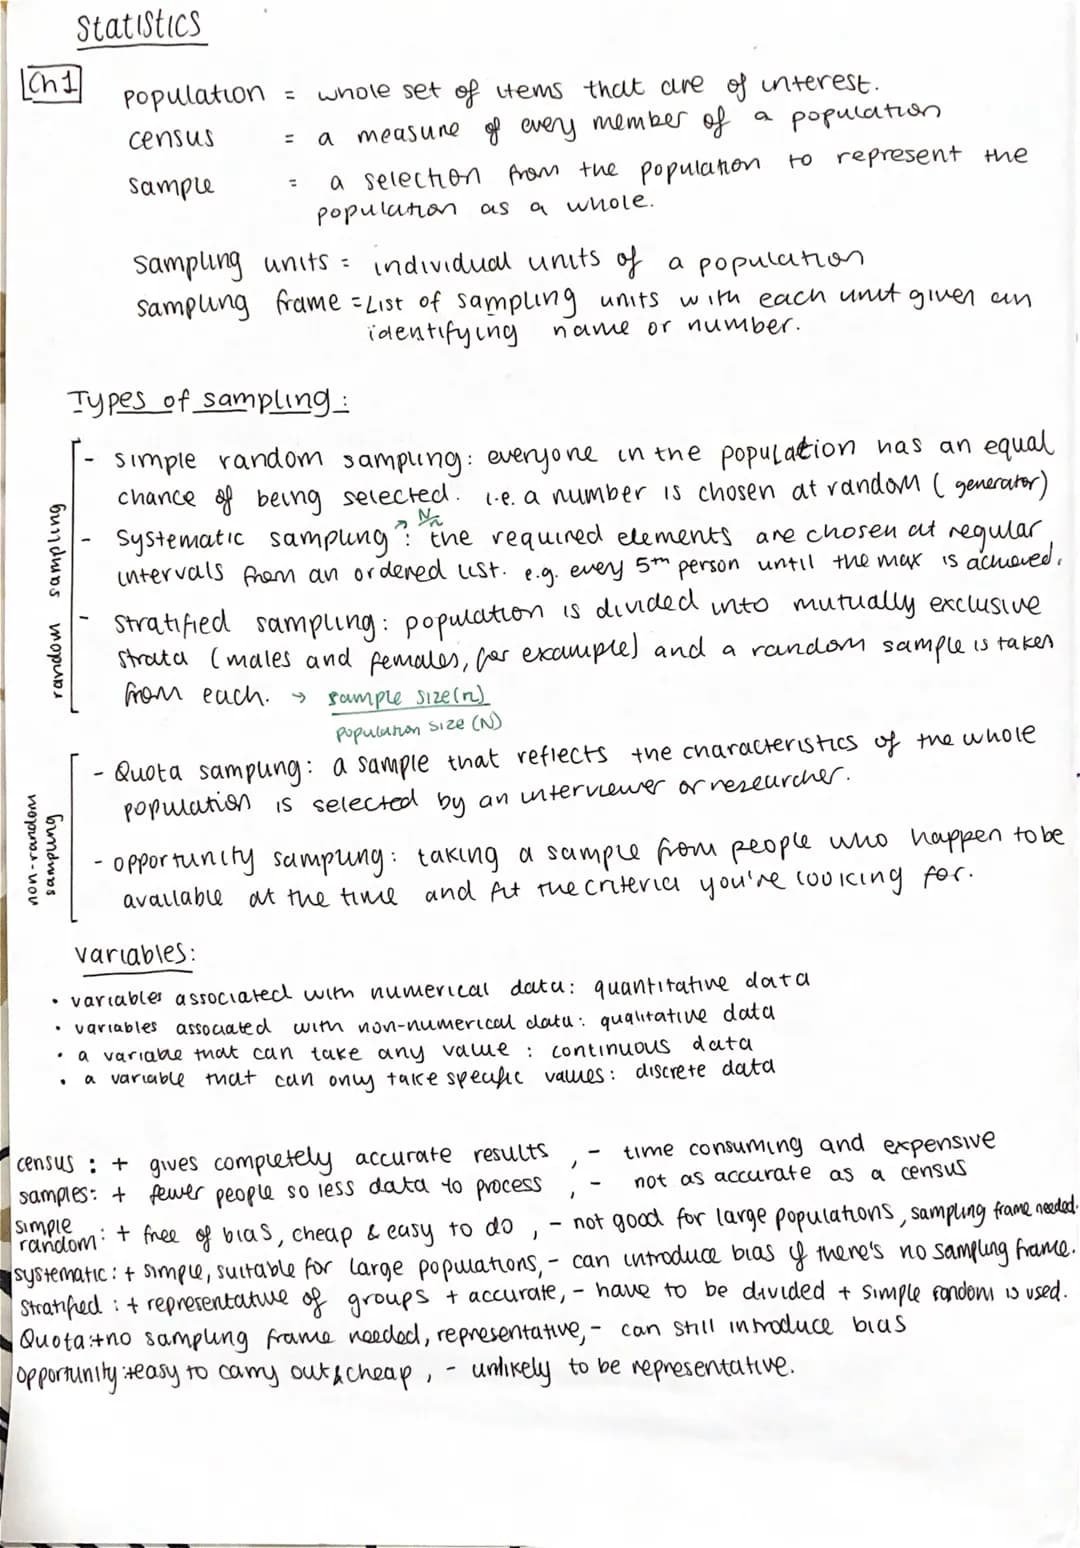 Statistics
Ch1
population = whole set of items that are of interest.
census = a measure of every member of a population
sample = a selection from the population to represent the
population as a whole.
Sampling units = individual units of a population
Sampling frame = List of sampling units with each unit given an
identifying name or number.
Types of sampling:
random sampling
- simple random sampling: everyone in the population has an equal
chance of being selected. i.e. a number is chosen at random (generator)
- Systematic sampling → N/n : the required elements are chosen at regular
intervals from an ordered list. e.g. every 5th person until the max is achieved.
- Stratified sampling: population is divided into mutually exclusive
strata (males and females, for example) and a random sample is taken
from each. → sample size(n)
population size (N)
non-random
sampling
- Quota sampling: a sample that reflects the characteristics of the whole
population is selected by an interviewer or researcher.
- opportunity sampling: taking a sample from people who happen to be
available at the time and fit the criteria you're looking for.
variables:
• variables associated with numerical data: quantitative data
• variables associated with non-numerical data: qualitative data
• a variable that can take any value : continuous data
• a variable that can only take specific values: discrete data
census : + gives completely accurate results , - time consuming and expensive
samples: + fewer people so less data to process , - not as accurate as a census
simple
random: + free of bias, cheap & easy to do , - not good for large populations, sampling frame needed.
systematic: + simple, suitable for large populations, - can introduce bias if there's no sampling frame.
Stratified : + representative of groups + accurate, - have to be divided + simple random is used.
Quota:+no sampling frame needed, representative, - can still introduce bias
opportunity:+easy to carry out & cheap , - unlikely to be representative.